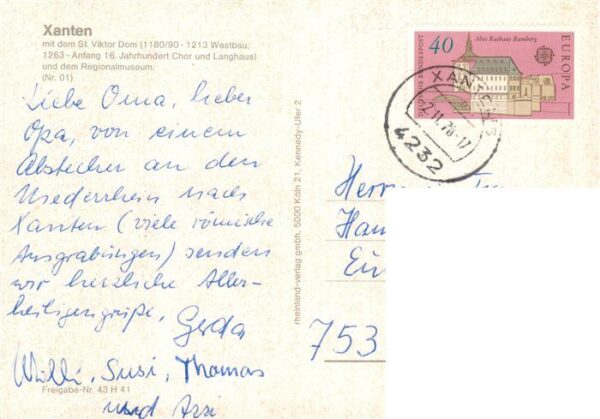 Xanten
mit dem St. Viktor Dom (1180/90 - 1213 Westbau,
1263 - Anfang 16. Jahrhundert Chor und Langhaus)
und dem Regionalmuseum.
(Nr. 01)
Liebe Oma, lieber
Opa, von einem
Abstecher an den
Niederrhein nach
Xanten (viele römische
Ausgrabungen) senden
wir herzliche Aller-
heiligengrüße, Gerda
Willi, Susi, Thomas
und
Freigabe-Nr. 43 H 41
rheinland-verlag gmbh, 5000 Köln 21, Kennedy-Ufer 2
Altes Rathaus Bamberg
40
EUROPA
DEUTSCHE BUNDESPOST
XANTEN
2.11.78-17
4232
Herrn
753